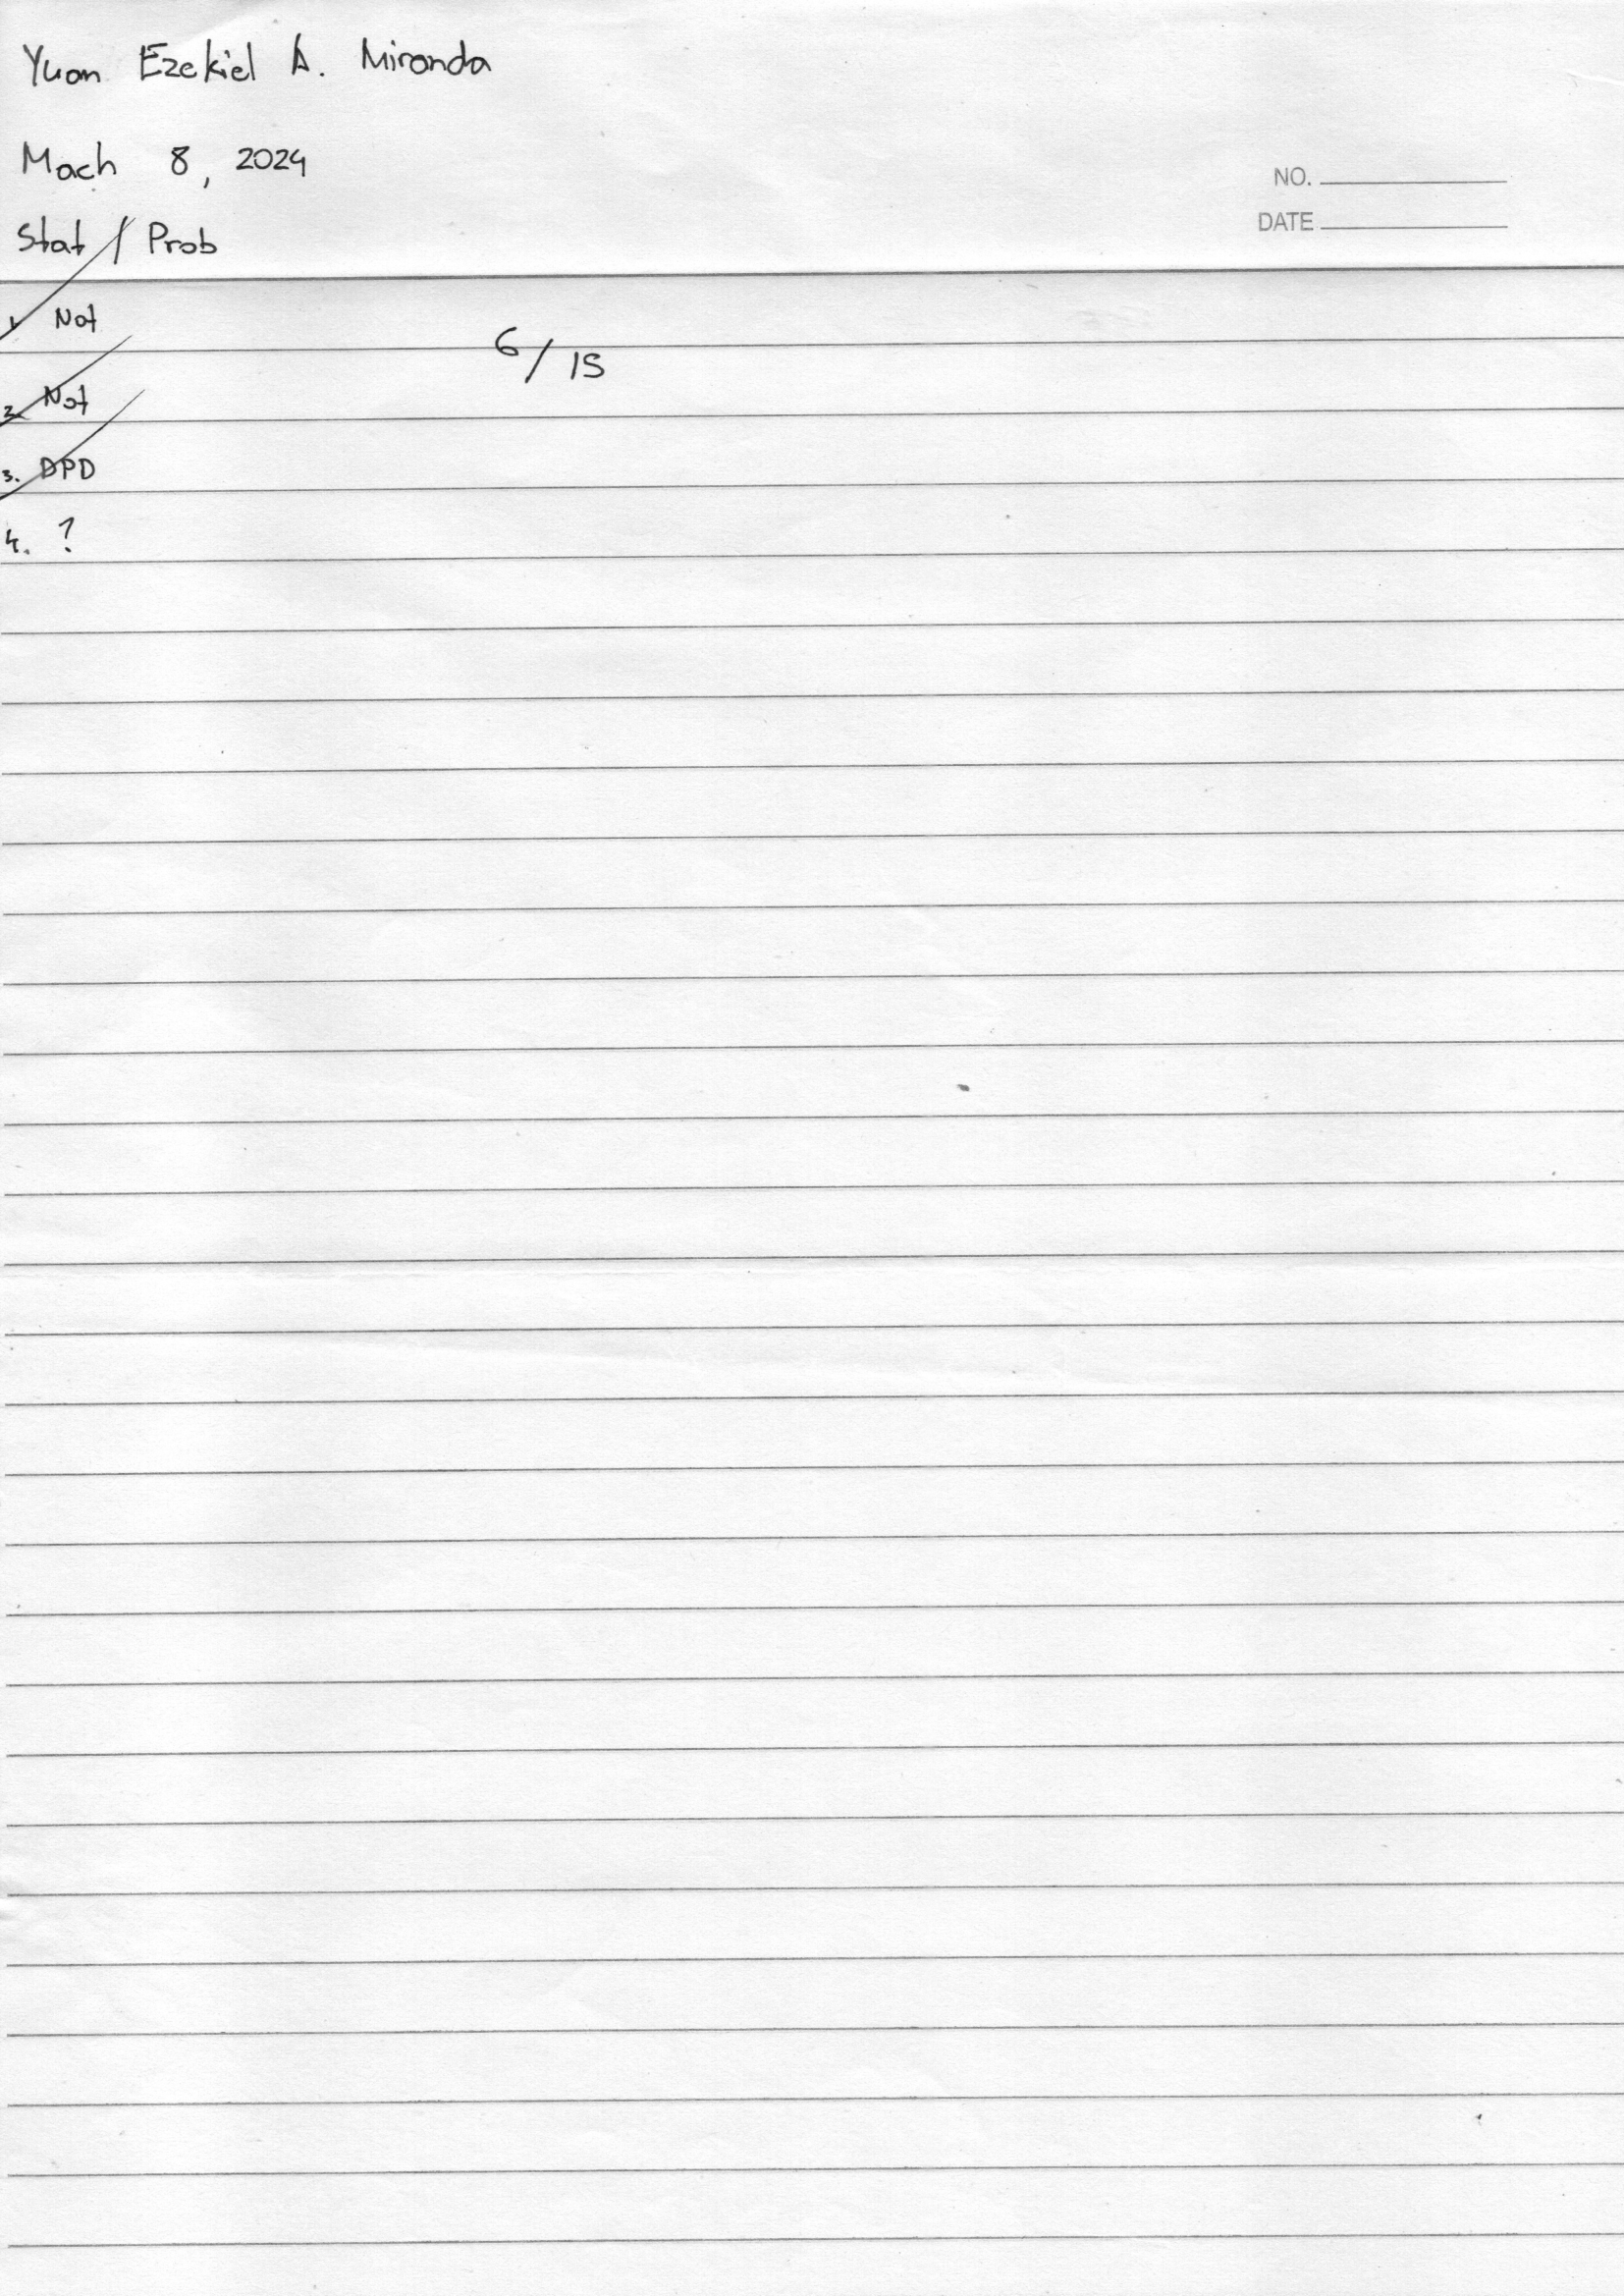 Yuan Ezekiel A. Miranda
Mach 8, 2024
NO.
Stat / Prob
DATE
1. Not
6/15
2. Not
3. DPD
4. ?